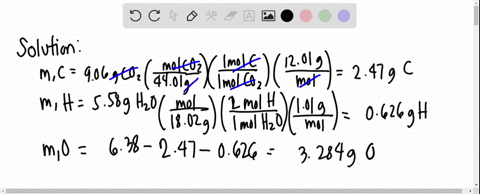 Solution:
m, C = 9.06 g CO₂ (mol CO₂ / 44.01 g) (1 mol C / 1 mol CO₂) (12.01 g / mol) = 2.47 g C
m, H = 5.58 g H₂O (mol / 18.02 g) (2 mol H / 1 mol H₂O) (1.01 g / mol) = 0.626 g H
m, O = 6.38 - 2.47 - 0.626 = 3.284 g O